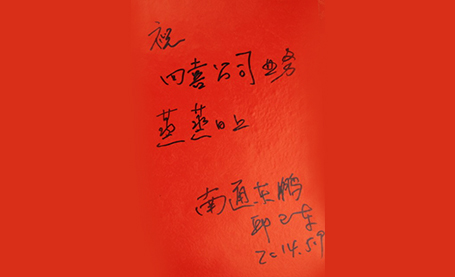 祝
四喜公司业务
蒸蒸日上
南通东鹏
2014.5.9